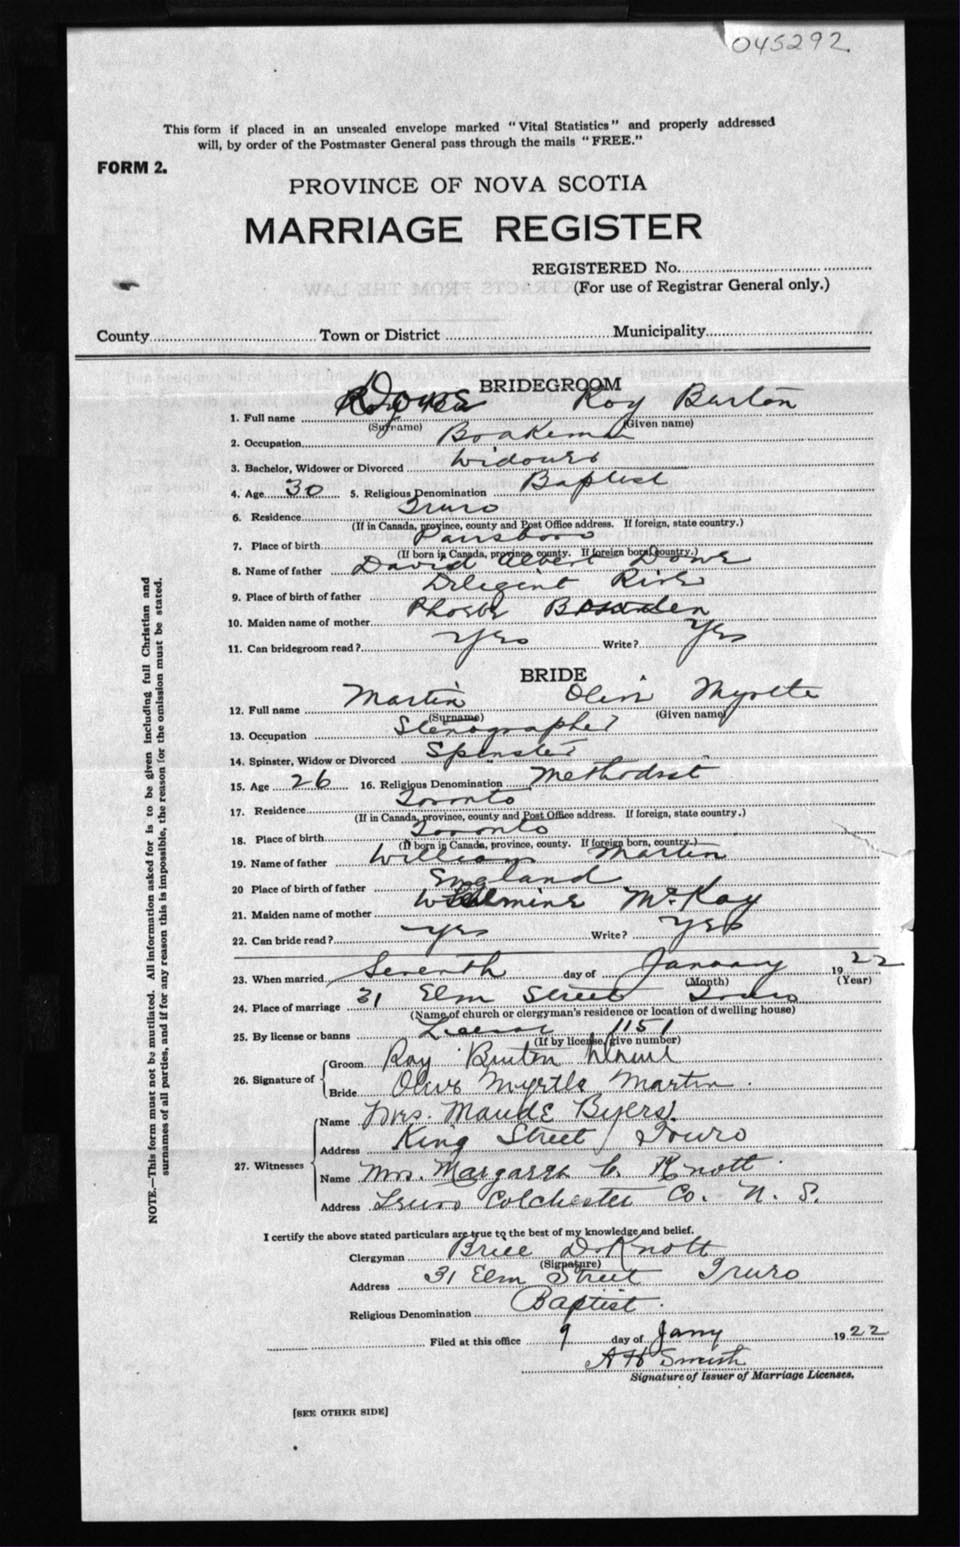 045292
This form if placed in an unsealed envelope marked "Vital Statistics" and properly addressed
will, by order of the Postmaster General pass through the mails "FREE."
FORM 2.
PROVINCE OF NOVA SCOTIA
MARRIAGE REGISTER
REGISTERED No.
(For use of Registrar General only.)
County Town or District Municipality
BRIDEGROOM
1. Full name Roy Burton
(Surname) (Given name)
2. Occupation Brakeman
3. Bachelor, Widower or Divorced Widower
4. Age 30 5. Religious Denomination Baptist
6. Residence Truro
(If in Canada, province, county and Post Office address. If foreign, state country.)
7. Place of birth Parrsboro
(If born in Canada, province, county. If foreign born, country.)
8. Name of father David Albert
9. Place of birth of father Diligent River
10. Maiden name of mother Phoebe
11. Can bridegroom read? Yes Write? Yes
BRIDE
12. Full name Martin Olive Myrtle
(Surname) (Given name)
13. Occupation Stenographer
14. Spinster, Widow or Divorced Spinster
15. Age 26 16. Religious Denomination Methodist
17. Residence Toronto
(If in Canada, province, county and Post Office address. If foreign, state country.)
18. Place of birth Toronto
(If born in Canada, province, county. If foreign born, country.)
19. Name of father William Martin
20 Place of birth of father England
21. Maiden name of mother McKay
22. Can bride read? Yes Write? Yes
23. When married Seventh day of January 1922
(Month) (Year)
24. Place of marriage 31 Elm Street Truro
(Name of church or clergyman's residence or location of dwelling house)
25. By license or banns License 1151
(If by license, give number)
26. Signature of
Groom Roy Burton
Bride Olive Myrtle Martin.
27. Witnesses
Name Mrs. Maude Byers.
Address King Street, Truro
Name Mrs. Margaret C. Knott.
Address Truro Colchester Co. N. S.
I certify the above stated particulars are true to the best of my knowledge and belief.
Clergyman Brice D. Knott
(Signature)
Address 31 Elm Street Truro
Religious Denomination Baptist.
Filed at this office 9 day of Jany 1922
A H Smith
Signature of Issuer of Marriage Licenses.
[SEE OTHER SIDE]
NOTE.—This form must not be mutilated. All information asked for is to be given including full Christian and
surnames of all parties, and if for any reason this is impossible, the reason for the omission must be stated.